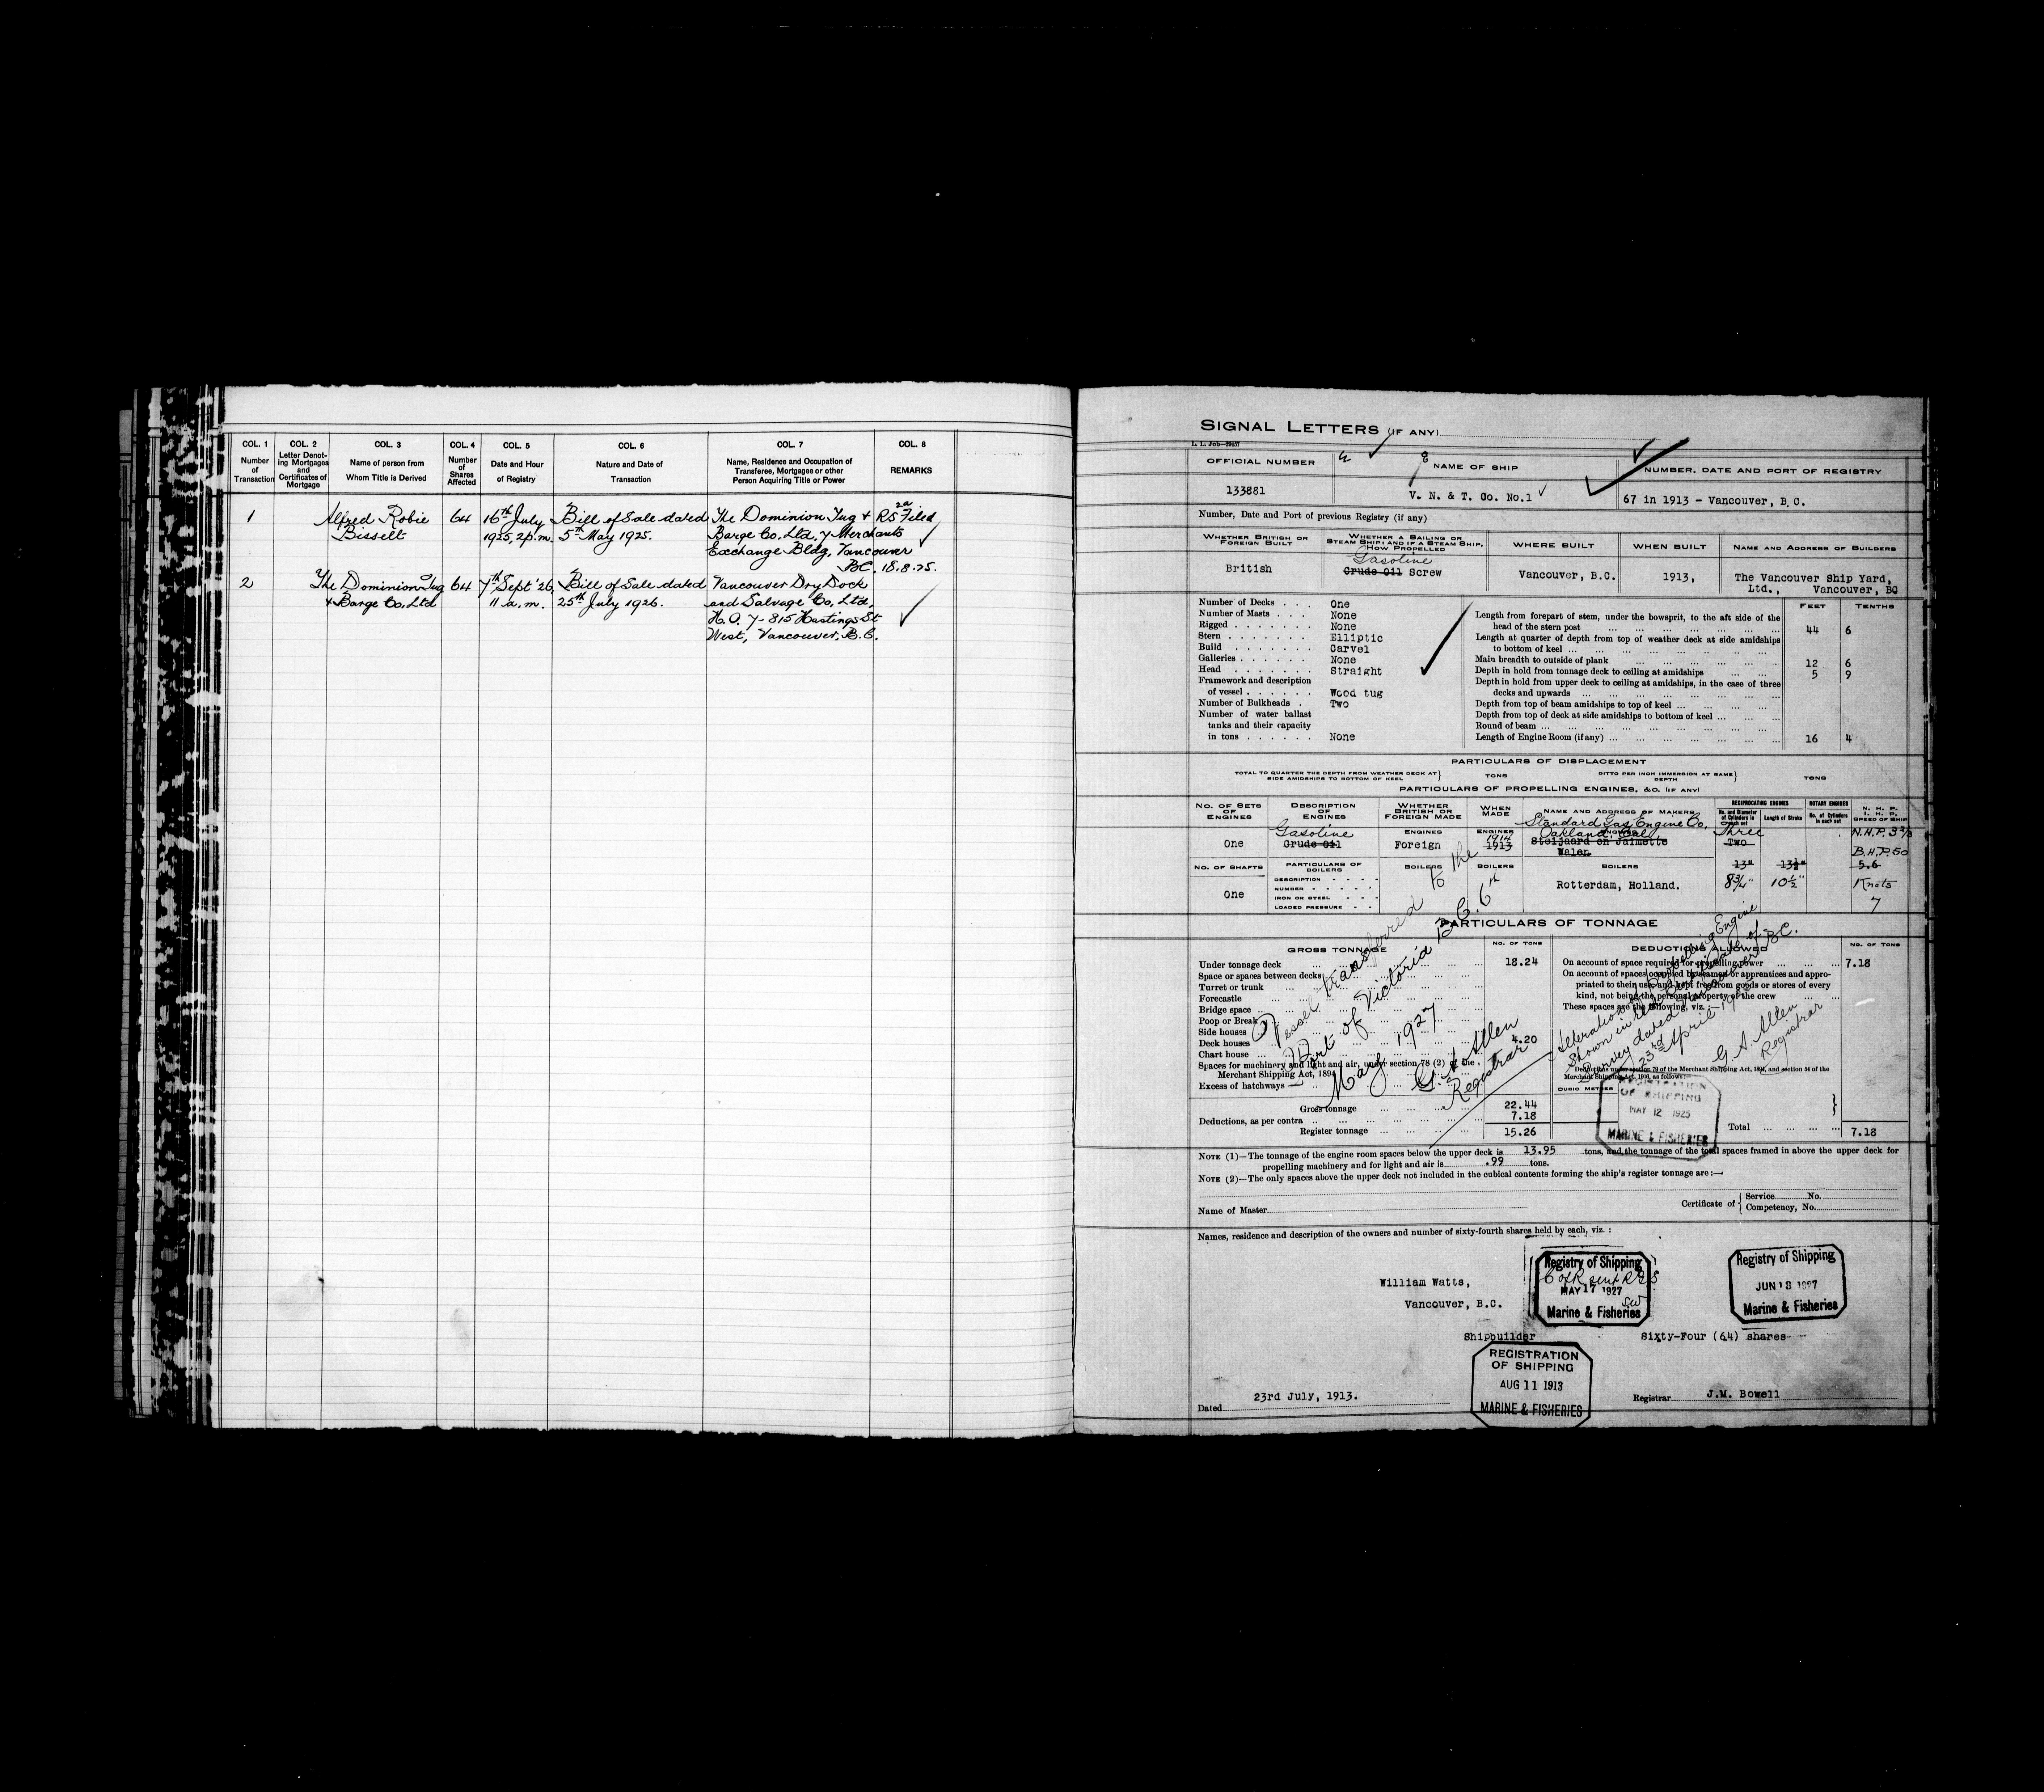 COL. 1 COL. 2 COL. 3 COL. 4 COL. 5 COL. 6 COL. 7 COL. 8
Number of Transaction
Letter Denoting Mortgages and Certificates of Mortgage
Name of person from Whom Title is Derived
Number of Shares Affected
Date and Hour of Registry
Nature and Date of Transaction
Name, Residence and Occupation of Transferee, Mortgagee or other Person Acquiring Title or Power
REMARKS
1 Alfred Robie 64 16th July Bill of Sale dated The Dominion Tug & RS 2a Filed
Bissett 1925, 2 p.m. 5th May 1925. Barge Co. Ltd, 7 Merchants
Exchange Bldg, Vancouver
B.C. 18.8.25.
2 The Dominion Tug 64 7th Sept '26, Bill of Sale dated Vancouver Dry Dock
& Barge Co. Ltd 11 a.m. 25th July 1926. and Salvage Co. Ltd,
H.O. 7-815 Hastings St
West, Vancouver, B.C.
SIGNAL LETTERS (IF ANY)
OFFICIAL NUMBER NAME OF SHIP NUMBER, DATE AND PORT OF REGISTRY
133881 V. N. & T. Co. No.1 67 in 1913 - Vancouver, B.C.
Number, Date and Port of previous Registry (if any)
WHETHER BRITISH OR FOREIGN BUILT
WHETHER A SAILING OR STEAM SHIP; AND IF A STEAM SHIP, HOW PROPELLED
WHERE BUILT WHEN BUILT NAME AND ADDRESS OF BUILDERS
Gasoline
British Crude Oil Screw Vancouver, B.C. 1913, The Vancouver Ship Yard,
Ltd., Vancouver, BC
Number of Decks . . . One
Number of Masts . . . None
Rigged . . . None
Stern . . . Elliptic
Build . . . Carvel
Galleries . . . None
Head . . . Straight
Framework and description
of vessel . . . Wood tug
Number of Bulkheads . Two
Number of water ballast
tanks and their capacity
in tons . . . None
FEET TENTHS
Length from forepart of stem, under the bowsprit, to the aft side of the
head of the stern post 44 6
Length at quarter of depth from top of weather deck at side amidships
to bottom of keel
Main breadth to outside of plank 12 6
Depth in hold from tonnage deck to ceiling at amidships 5 9
Depth in hold from upper deck to ceiling at amidships, in the case of three
decks and upwards
Depth from top of beam amidships to top of keel
Depth from top of deck at side amidships to bottom of keel
Round of beam
Length of Engine Room (if any) 16 4
PARTICULARS OF DISPLACEMENT
TOTAL TO QUARTER THE DEPTH FROM WEATHER DECK AT SIDE AMIDSHIPS TO BOTTOM OF KEEL } TONS DITTO PER INCH IMMERSION AT SAME DEPTH } TONS
PARTICULARS OF PROPELLING ENGINES, &C. (IF ANY)
NO. OF SETS OF ENGINES
DESCRIPTION OF ENGINES
WHETHER BRITISH OR FOREIGN MADE
WHEN MADE
NAME AND ADDRESS OF MAKERS
RECIPROCATING ENGINES
No. and Diameter of Cylinders in each set
Length of Stroke
ROTARY ENGINES
No. of Cylinders in each set
N. H. P. I. H. P. SPEED OF SHIP
Standard Gas Engine Co.
Gasoline ENGINES ENGINES 1914 Oakland, Cal. Three N.H.P.
One Crude Oil Foreign 1913 Two
Walen B.H.P. 50
NO. OF SHAFTS PARTICULARS OF BOILERS BOILERS BOILERS BOILERS 13" 13½" 5.6
DESCRIPTION
NUMBER
IRON OR STEEL
LOADED PRESSURE
One Rotterdam, Holland. 8¾" 10½" Knots
7
PARTICULARS OF TONNAGE
GROSS TONNAGE NO. OF TONS DEDUCTIONS ALLOWED NO. OF TONS
Under tonnage deck 18.24
Space or spaces between decks
Turret or trunk
Forecastle
Bridge space
Poop or Break
Side houses
Deck houses 4.20
Chart house
Spaces for machinery and light and air, under section 78 (2) of the
Merchant Shipping Act, 1894
Excess of hatchways
Gross tonnage 22.44
Deductions, as per contra 7.18
Register tonnage 15.26
On account of space required for propelling power 7.18
On account of spaces occupied by seamen or apprentices and appro-
priated to their use, and kept free from goods or stores of every
kind, not being the personal property of the crew
These spaces are the following, viz.:—
Deductions under section 79 of the Merchant Shipping Act, 1894, and section 54 of the
Merchant Shipping Act, 1906, as follows:—
CUBIC METRES
Total 7.18
Vessel transferred to the
Port of Victoria B.C. 6th
May 1927
G. A. Allen
Registrar
Alteration of propelling Engine
Shown in red Certificate of
Survey dated Vancouver B.C.
23rd April 1925
G. A. Allen
Registrar
REGISTRATION
OF SHIPPING
MAY 12 1925
MARINE & FISHERIES
NOTE (1)—The tonnage of the engine room spaces below the upper deck is 13.95 tons, and the tonnage of the total spaces framed in above the upper deck for
propelling machinery and for light and air is .99 tons.
NOTE (2)—The only spaces above the upper deck not included in the cubical contents forming the ship's register tonnage are:—
Name of Master
Certificate of { Service No.
Competency, No.
Names, residence and description of the owners and number of sixty-fourth shares held by each, viz. :
William Watts,
Vancouver, B.C.
Shipbuilder Sixty-Four (64) shares
Registry of Shipping
MAY 17 1927
Marine & Fisheries
Registry of Shipping
JUN 13 1927
Marine & Fisheries
REGISTRATION
OF SHIPPING
AUG 11 1913
MARINE & FISHERIES
Dated 23rd July, 1913. Registrar J.M. Bowell